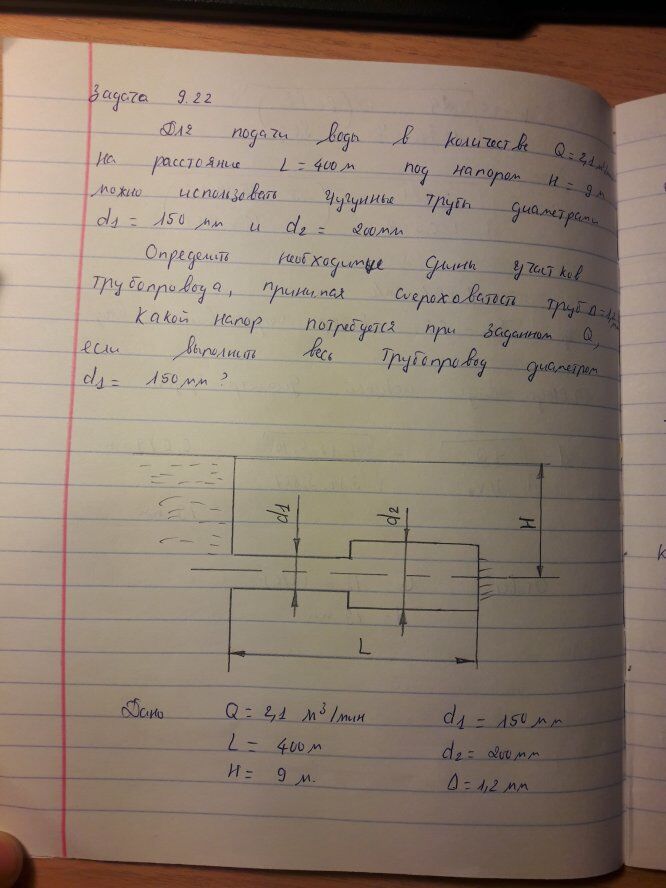 Задача 9.22
Для подачи воды в количестве Q = 2,1 м³/мин
на расстояние L = 400 м под напором H = 9 м
можно использовать чугунные трубы диаметрами
d1 = 150 мм и d2 = 200мм
Определить необходимые длины участков
трубопровода, принимая шероховатость труб Δ = 1,2 мм
Какой напор потребуется при заданном Q,
если выполнить весь трубопровод диаметром
d1 = 150 мм?
d1
d2
H
L
Дано Q = 2,1 м³/мин d1 = 150 мм
L = 400 м d2 = 200мм
H = 9 м. Δ = 1,2 мм